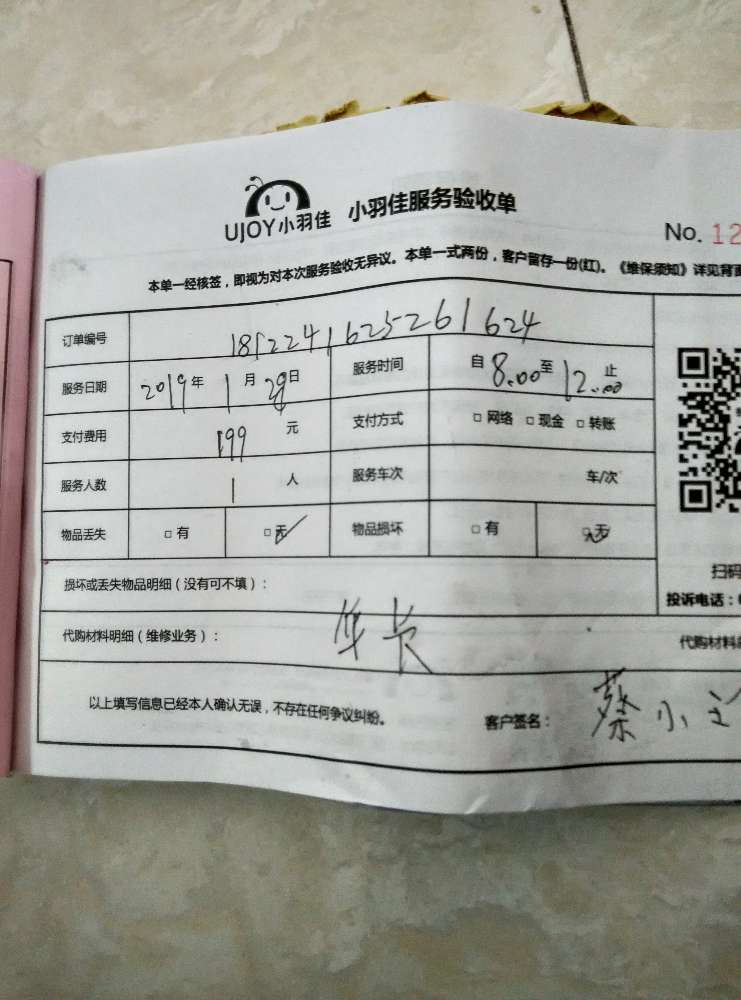 UJOY小羽佳 小羽佳服务验收单
No. 12
本单一经核签，即视为对本次服务验收无异议。本单一式两份，客户留存一份(红)。《维保须知》详见背面
订单编号 1852241625261624
服务日期 2019年1月29日 服务时间 自8:00至12:00止
支付费用 199元 支付方式 □网络 □现金 □转账
服务人数 1人 服务车次 车/次
物品丢失 □有 □无 物品损坏 □有 □无
损坏或丢失物品明细（没有可不填）：
扫码
投诉电话：
代购材料明细（维修业务）： 年长 代购材料
以上填写信息已经本人确认无误，不存在任何争议纠纷。 客户签名： 蔡小